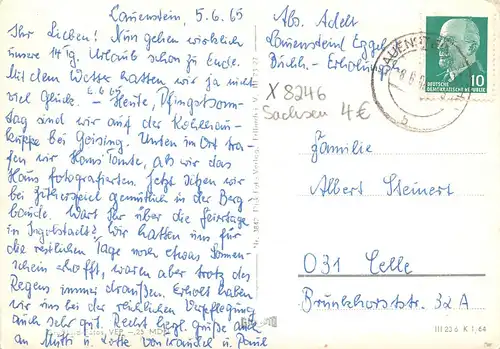 Lauenstein, 5.6.65
Ihr Lieben! Nun gehen wirklich
unsere 14 Tg. Urlaub schon zu Ende.
Mit dem Wetter hatten wir ja nicht
viel Glück. – 6.6.65 Heute, Pfingstsonn-
tag sind wir auf der Kohlhau-
kuppe bei Geising. Unten im Ort tra-
fen wir Hans Tante, als wir das
Haus fotografierten. Jetzt sitzen wir
bei gemütlich in der Berg
baude. Wart Ihr über die Feiertage
in Ingolstadt? Wir hatten uns für
die restlichen Tage noch etwas Sonnen-
schein erhofft, waren aber trotz des
Regens immer draußen. Erholt haben
wir uns bei der reichlichen Verpflegung
auch sehr gut. Recht herzl. Grüße auch
an Mutti u. Lotte von u. Paul
Abs. Adelt
Lauenstein/
X 8246
Sachsen 4€
DEUTSCHE
DEMOKRATISCHE REPUBLIK
10
b
Familie
Albert Steinert
031 Celle
Brunkhorststr. 32A
III 23 6 K 1/64